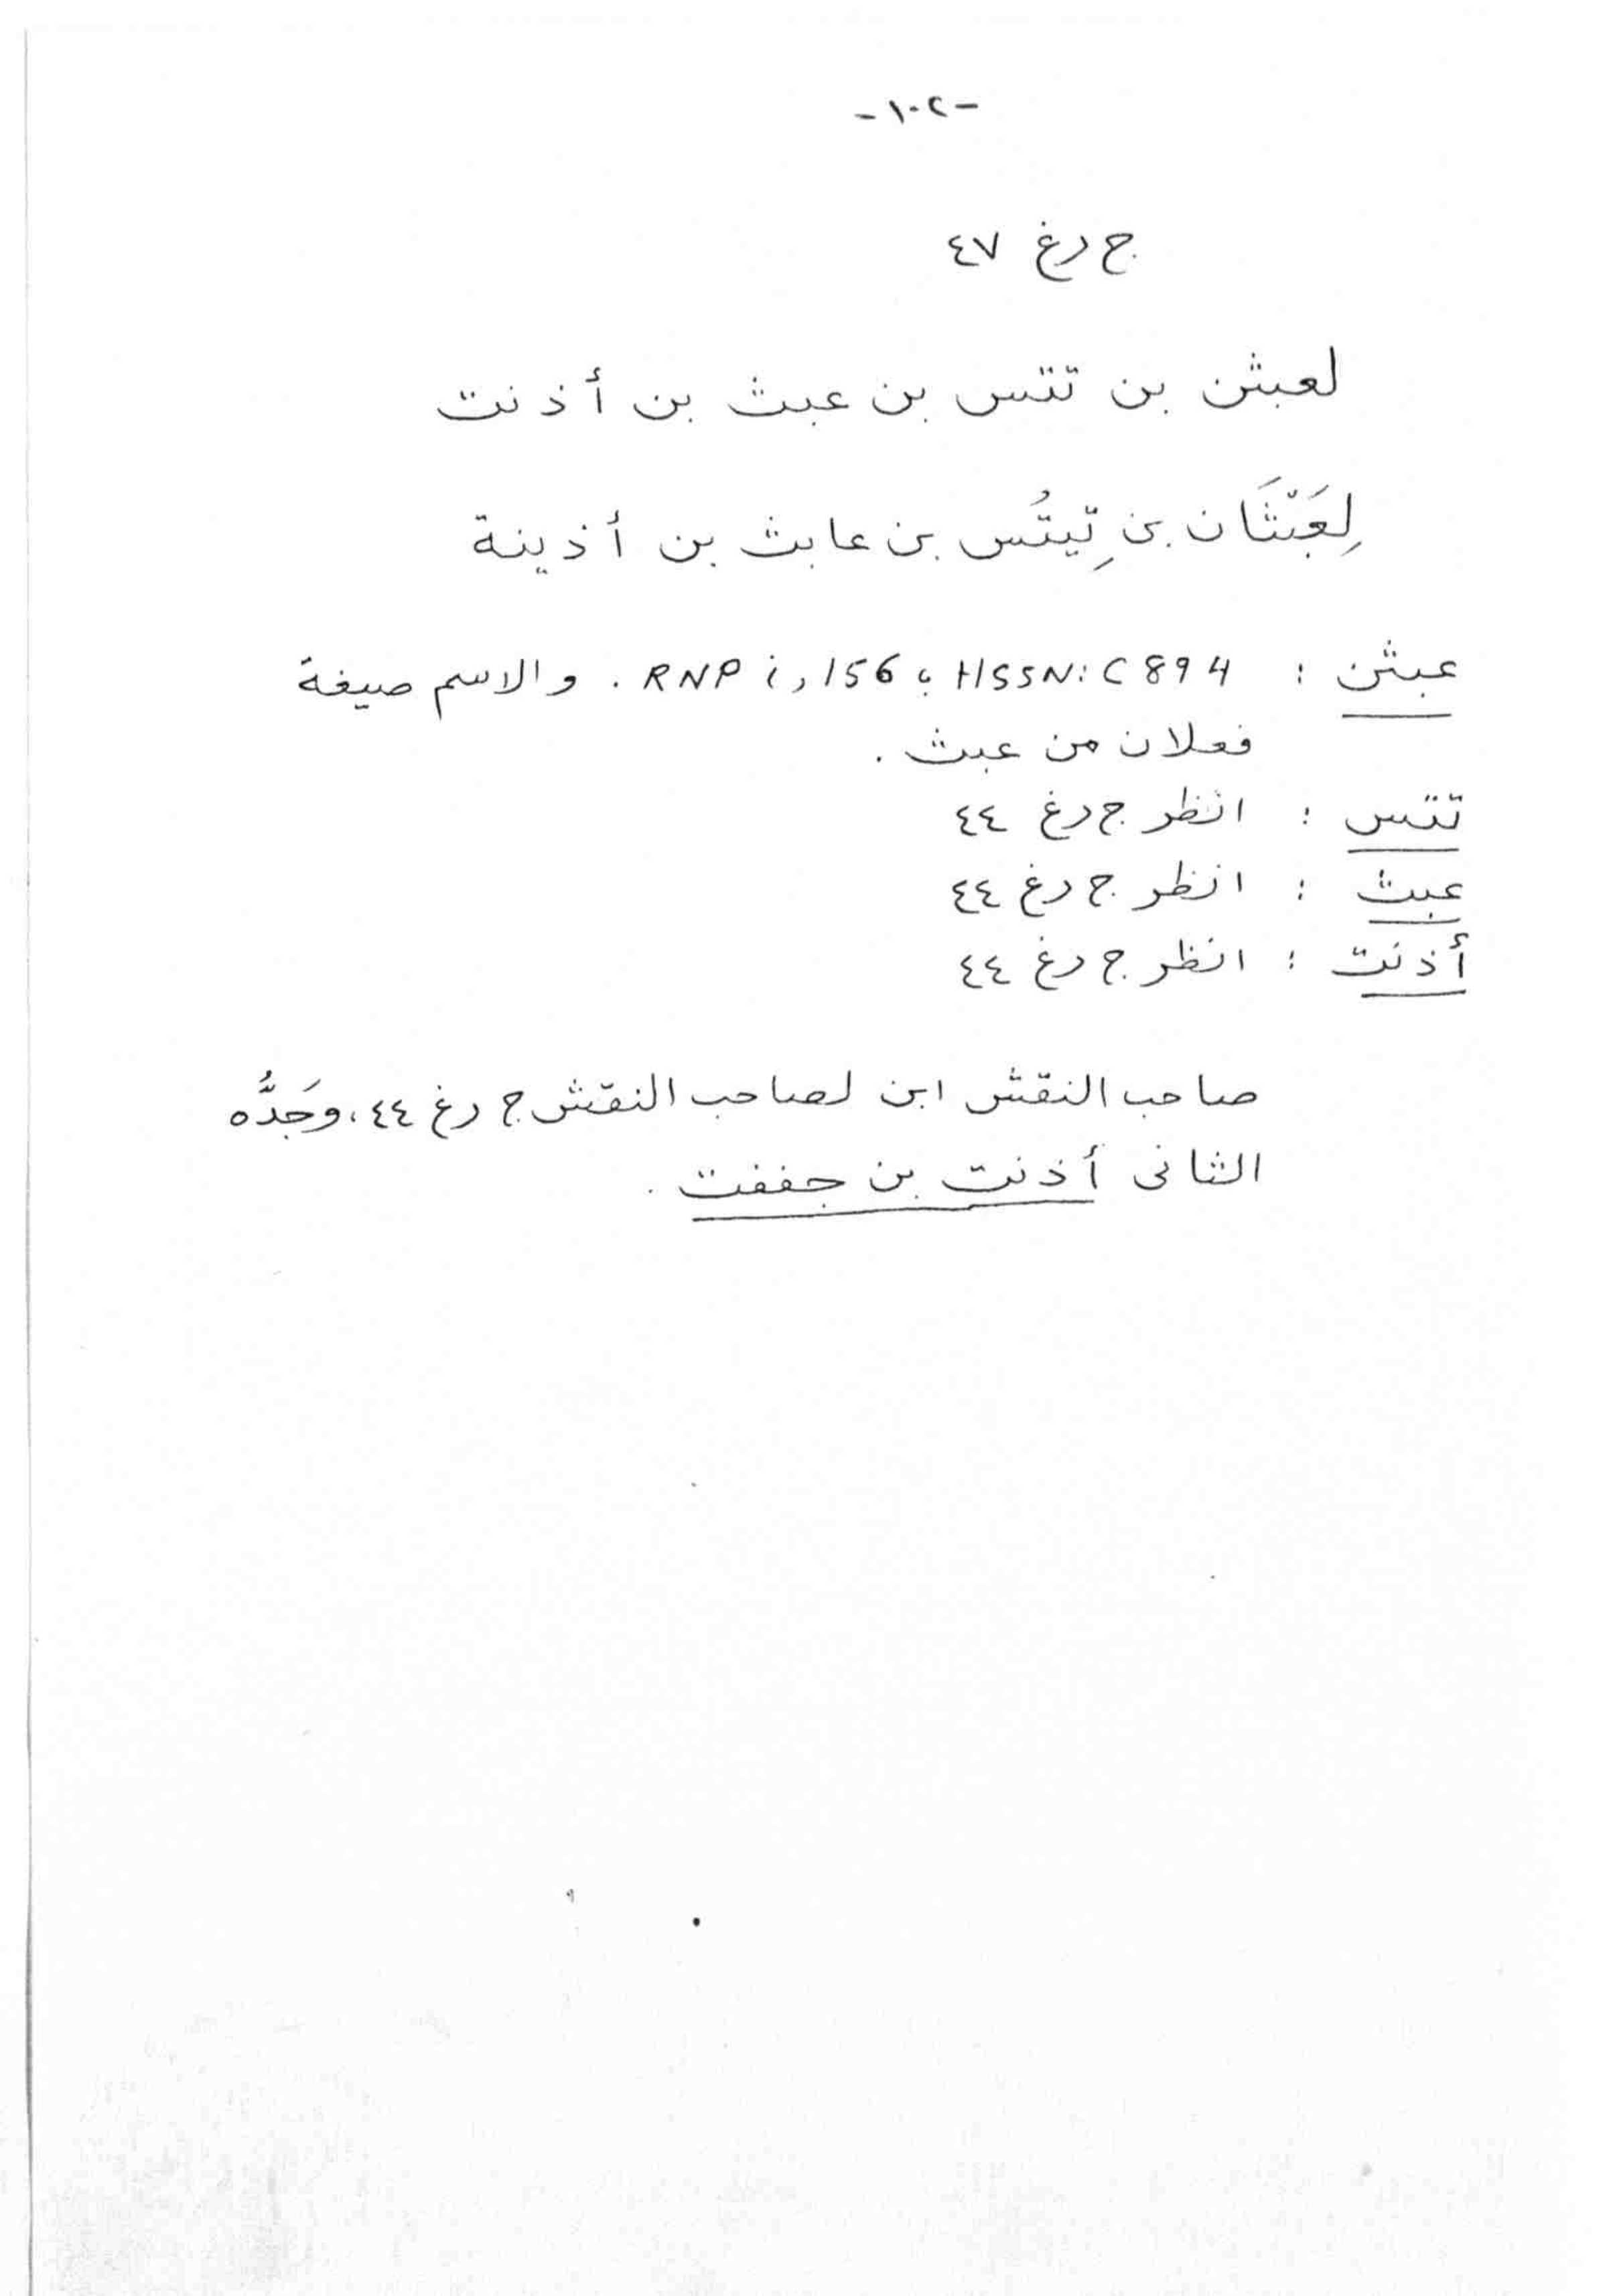 -١٠٢-
ج رغ ٤٧
لعبثن بن تتس بن عبث بن أذنت
لِعَبْثَان بن تِيتُس بن عابث بن أذينة
عبثن : HSSN: C 894 ؛ RNP i, 156 . والاسم صيغة
فعلان من عبث .
تتس : انظر ج رغ ٤٤
عبث : انظر ج رغ ٤٤
أذنت : انظر ج رغ ٤٤
صاحب النقش ابن لصاحب النقش ج رغ ٤٤، وجَدُّه
الثانى أذنت بن جففت .